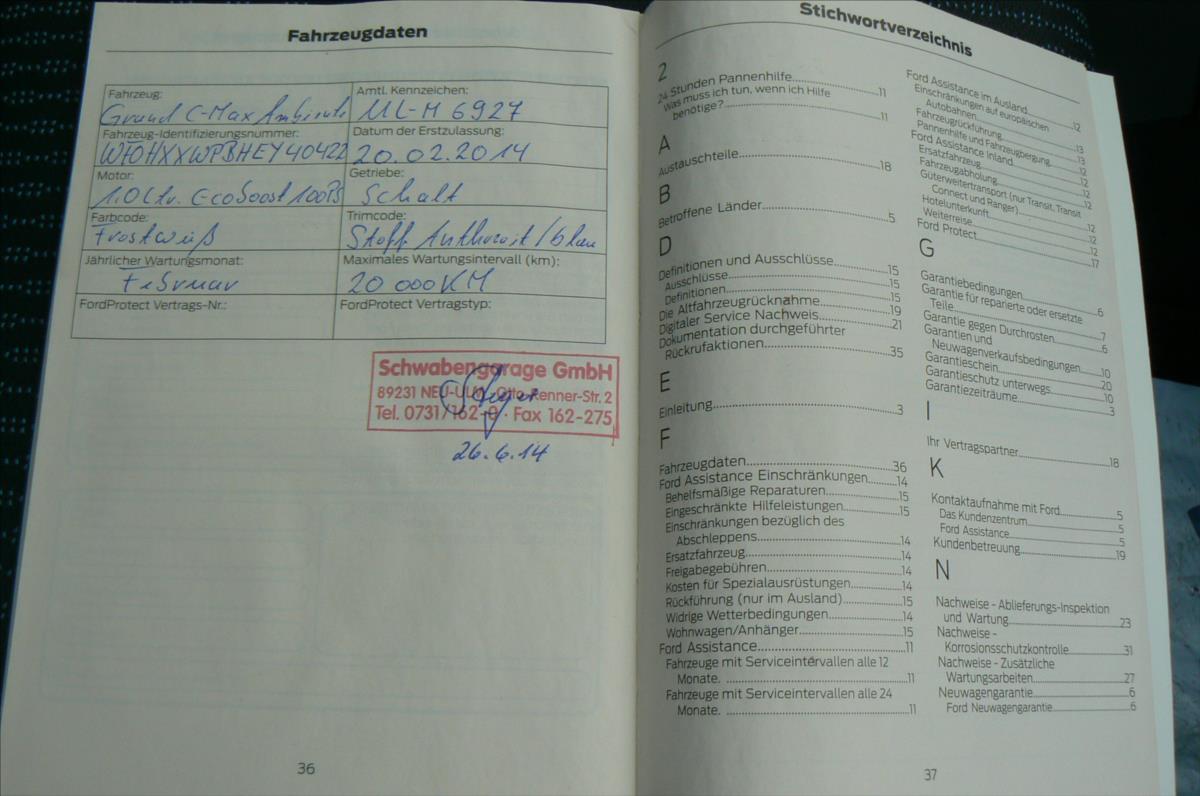 Fahrzeugdaten
Fahrzeug:
Grand C-Max Ambiente
Amtl. Kennzeichen:
UL-M 6927
Fahrzeug-Identifizierungsnummer:
WF0HXXWPBHEY40422
Datum der Erstzulassung:
20.02.2014
Motor:
1.0 Ltr. EcoBoost 100PS
Getriebe:
Schalt
Farbcode:
Frostweiß
Trimcode:
Stoff Anthrazit/blau
Jährlicher Wartungsmonat:
Februar
Maximales Wartungsintervall (km):
20 000 KM
FordProtect Vertrags-Nr.:
FordProtect Vertragstyp:
Schwabengarage GmbH
89231 NEU-ULM · Otto-Renner-Str. 2
Tel. 0731/162-0 · Fax 162-275
26.6.14
36
Stichwortverzeichnis
2
24 Stunden Pannenhilfe.....11
Was muss ich tun, wenn ich Hilfe
benötige?.....11
A
Austauschteile.....18
B
Betroffene Länder.....5
D
Definitionen und Ausschlüsse.....15
Ausschlüsse.....15
Definitionen.....15
Die Altfahrzeugrücknahme.....19
Digitaler Service Nachweis.....21
Dokumentation durchgeführter
Rückrufaktionen.....35
E
Einleitung.....3
F
Fahrzeugdaten.....36
Ford Assistance Einschränkungen.....14
Behelfsmäßige Reparaturen.....15
Eingeschränkte Hilfeleistungen.....15
Einschränkungen bezüglich des
Abschleppens.....14
Ersatzfahrzeug.....14
Freigabegebühren.....14
Kosten für Spezialausrüstungen.....14
Rückführung (nur im Ausland).....15
Widrige Wetterbedingungen.....14
Wohnwagen/Anhänger.....15
Ford Assistance.....11
Fahrzeuge mit Serviceintervallen alle 12
Monate. .....11
Fahrzeuge mit Serviceintervallen alle 24
Monate. .....11
Ford Assistance im Ausland.....12
Einschränkungen auf europäischen
Autobahnen.....13
Fahrzeugrückführung.....13
Pannenhilfe und Fahrzeugbergung.....12
Ford Assistance Inland.....12
Ersatzfahrzeug.....12
Fahrzeugabholung.....12
Güterweitertransport (nur Transit, Transit
Connect und Ranger).....12
Hotelunterkunft.....12
Weiterreise.....12
Ford Protect.....17
G
Garantiebedingungen.....6
Garantie für reparierte oder ersetzte
Teile.....7
Garantie gegen Durchrosten.....6
Garantien und
Neuwagenverkaufsbedingungen.....10
Garantieschein.....20
Garantieschutz unterwegs.....10
Garantiezeiträume.....3
I
Ihr Vertragspartner.....18
K
Kontaktaufnahme mit Ford.....5
Das Kundenzentrum.....5
Ford Assistance.....5
Kundenbetreuung.....19
N
Nachweise - Ablieferungs-Inspektion
und Wartung.....23
Nachweise -
Korrosionsschutzkontrolle.....31
Nachweise - Zusätzliche
Wartungsarbeiten.....27
Neuwagengarantie.....6
Ford Neuwagengarantie.....6
37